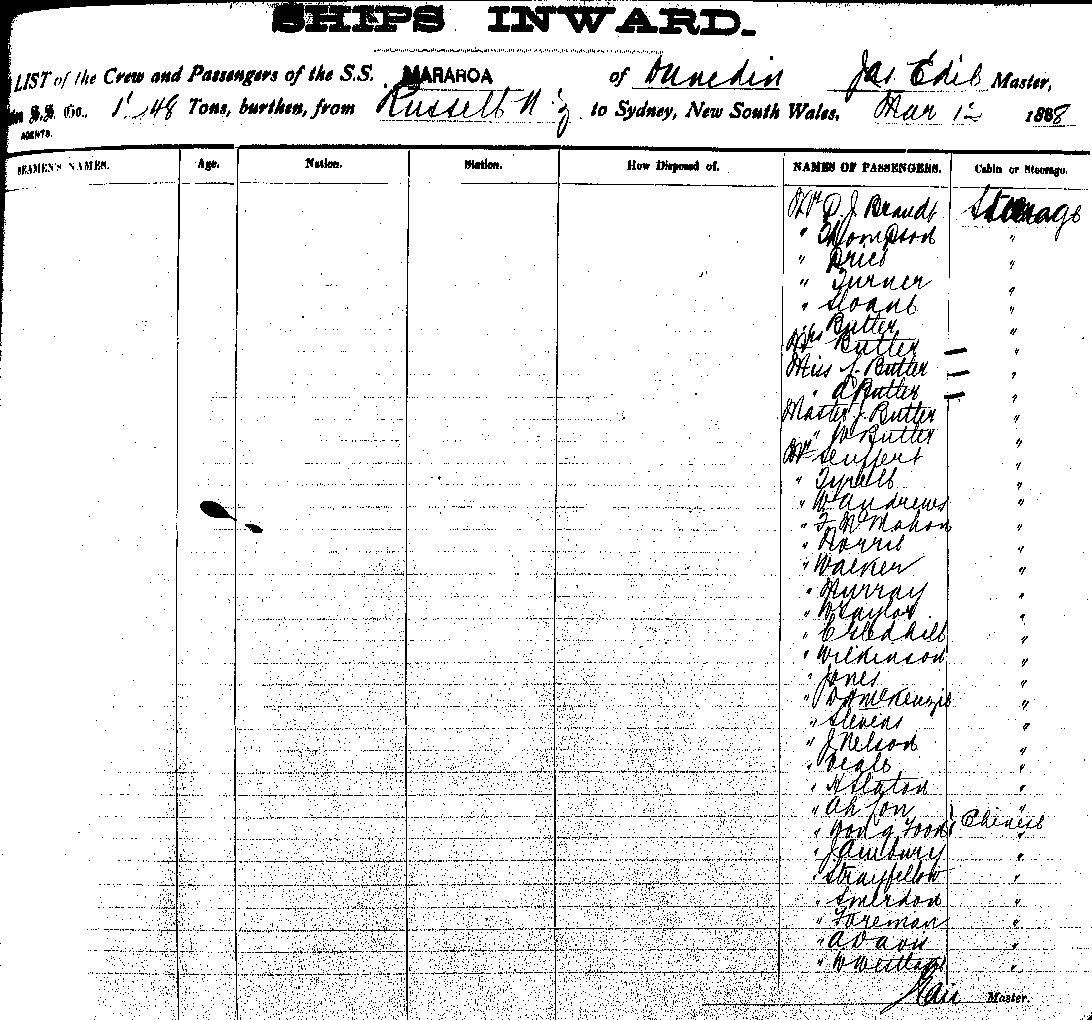 SHIPS INWARD.
LIST of the Crew and Passengers of the S.S. MARAROA of Dunedin Jas Edie Master,
S.S. Co., 1'48 Tons, burthen, from Russell N.Z to Sydney, New South Wales, Mar 12 1888
AGENTS.
SEAMEN'S NAMES. Age. Nation. Station. How Disposed of. NAMES OF PASSENGERS. Cabin or Steerage.
Mr P. J. Brandt Steerage
" Thompson "
" Price "
" Turner "
" Sloane "
Butter "
Mrs Butter — "
Miss J. Butter — "
" A Butter — "
Master J. Butter "
" W Butter "
Mr Seuffert "
" Tyrell "
" W Andrews "
" F McMahon "
" Norris "
" Walker "
" Murray "
" W Taylor "
" C Gledhill "
" Wilkinson "
" Jones "
" D McKenzie "
" Stevens "
" J Nelson "
" Veale "
" "
" Ah Jon "
" Yong Foon } Chinese "
" "
" Strayfellow "
" Smerdon "
" Foreman "
" A Davis "
" W "
Master.